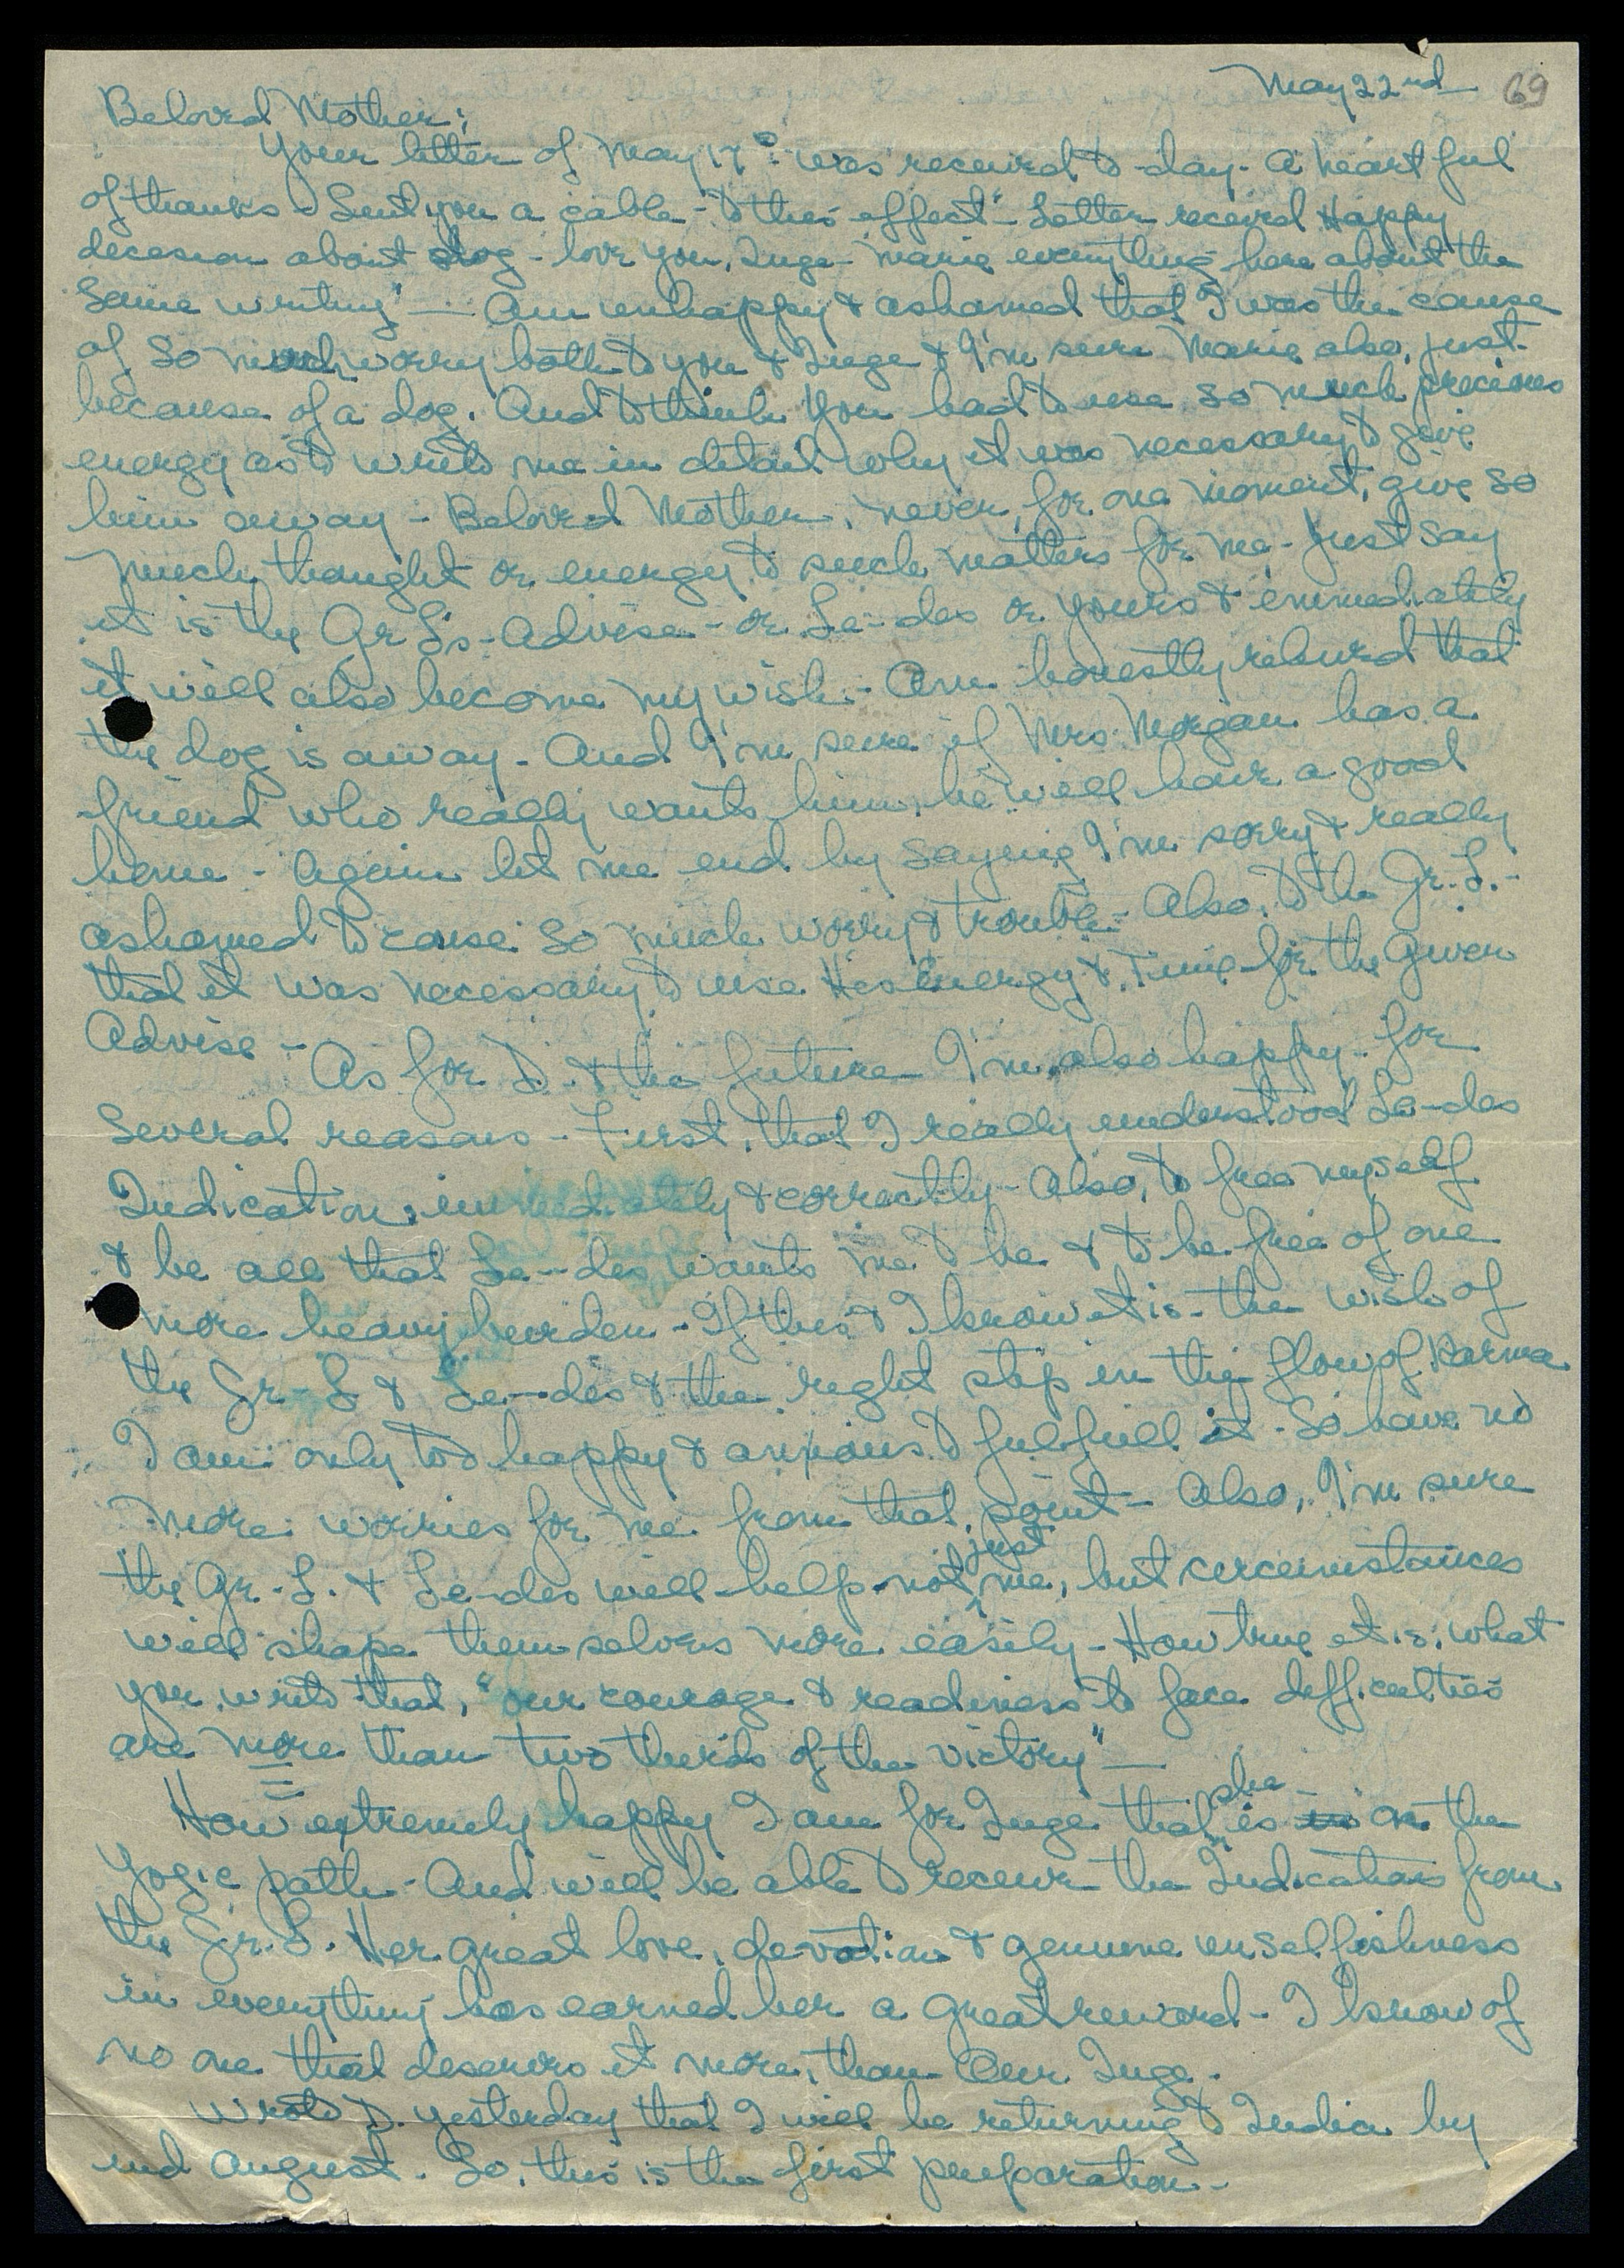 May 22nd 69
Beloved Mother;
Your letter of May 17th was received to-day. A heart full
of thanks - Sent you a cable - to this effect "- Letter received Happy
decesion about dog - love you, Inge - Marie everything here about the
same writing" — Am unhappy & ashamed that I was the cause
of so much worry both to you & Inge & I'm sure Marie also, just
because of a dog. And to think you had to use so much precious
energy as to write me in detail why it was necessary to give
him away - Beloved Mother, never, for one moment, give so
much thought or energy to such matters for me - Just say
it is the Gr L's - Advise - or La-des or yours & immediately
it will also become my wish. - Am honestly relieved that
the dog is away - And I'm sure if Mrs. Morgan has a
friend who really wants him, he will have a good
home - Again let me end by saying I'm sorry & really
ashamed to cause so much worry & trouble - Also, to the Gr. L. -
that it was necessary to use His Energy & Time for the given
Advise -
As for D. & the future - I'm also happy - for
several reasons - First, that I really understood La-des
Indications immediately & correctly - Also, to free myself
& be all that La-des wants me to be & to be free of one
more heavy burden - If this & I know it is - the wish of
the Gr - L & La-des & the right step in the flow of Karma
I am only too happy & anxious to fulfill it - So have no
more worries for me from that point - Also, I'm sure
the Gr - L. & La-des will help - not just me, but circumstances
will shape themselves more easily - How true it is; what
you write that, "our courage & readiness to face difficulties
are more than two thirds of the victory" —
How extremely happy I am for Inge that she is on the
Yogic path - And will be able to receive the Indications from
the Gr. L. Her great love, devotion & genuine unselfishness
in everything has earned her a great reward - I know of
no one that deserves it more, than Our Inge -
Wrote D. yesterday that I will be returning to India by
end August. So, this is the first preparation -